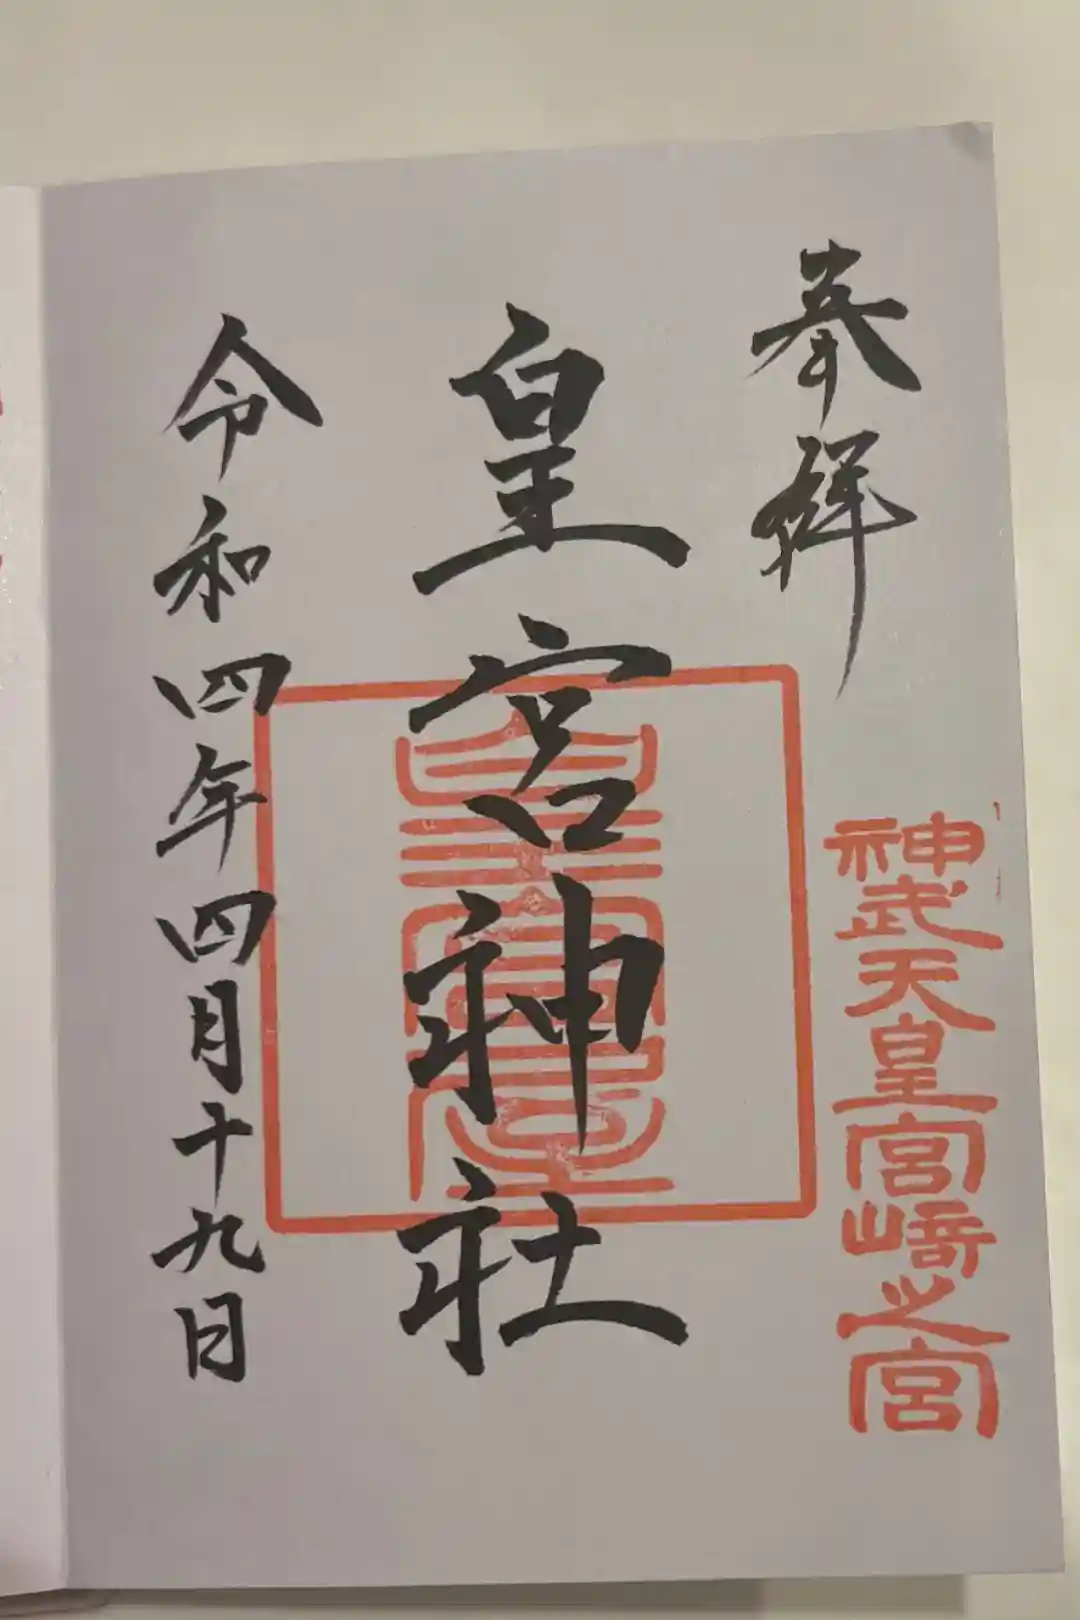 奉拝
神武天皇宮崎之宮
皇宮神社
皇宮屋
令和四年四月十九日